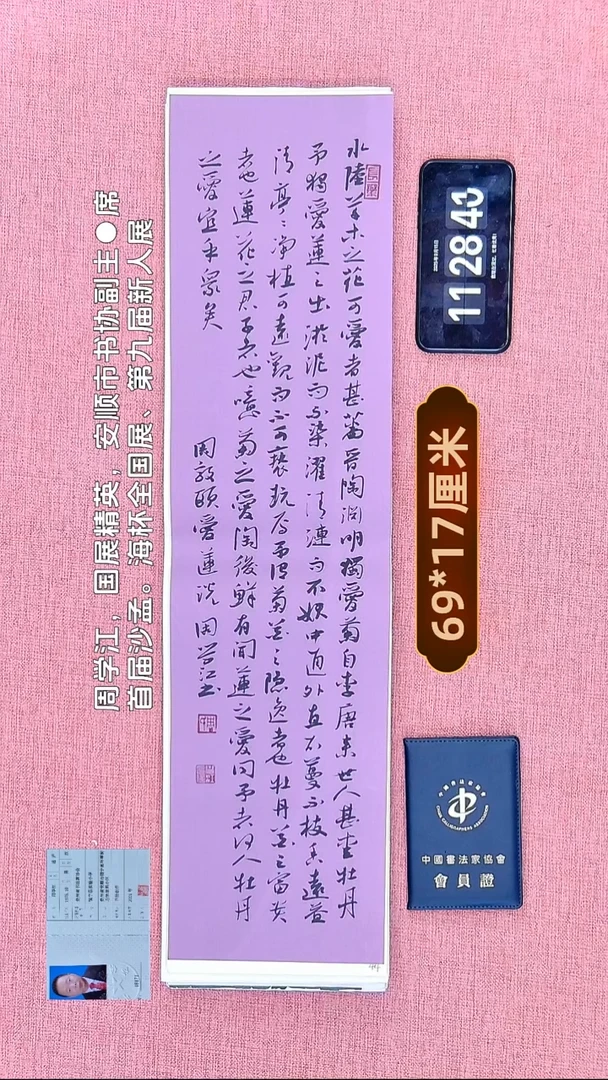 水陸草木之花可愛者甚蕃晉陶淵明獨愛菊自李唐來世人甚愛牡丹
予獨愛蓮之出淤泥而不染濯清漣而不妖中通外直不蔓不枝香遠益
清亭〻淨植可遠觀而不可褻玩焉予謂菊花之隱逸者也牡丹花之富貴
者也蓮花之君子者也噫菊之愛陶後鮮有聞蓮之愛同予者何人牡丹
之愛宜乎眾矣
周敦頤愛蓮說 周學江書
周学江，国展精英，安顺市书协副主●席
首届沙孟。海杯全国展、第九届新人展
11 28
69*17厘米
中國書法家協會
CHINA CALLIGRAPHERS ASSOCIATION
中國書法家協會
會員證